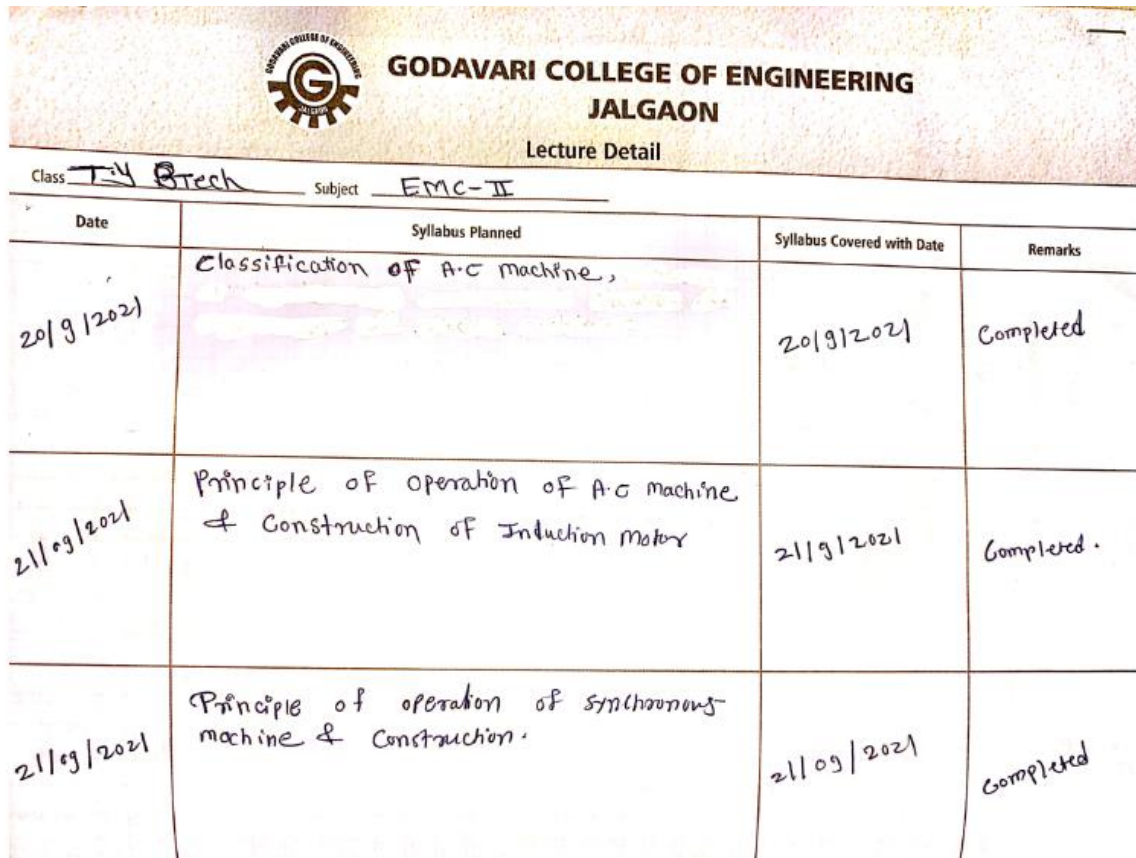 GODAVARI COLLEGE OF ENGINEERING
G
JALGAON
GODAVARI COLLEGE OF ENGINEERING
JALGAON
Lecture Detail
Class T.Y BTech Subject EMC-II
Date Syllabus Planned Syllabus Covered with Date Remarks
20/9/2021 Classification of A.C machine, 20/9/2021 Completed
21/09/2021 Principle of operation of A.C machine 21/9/2021 Completed.
& Construction of Induction Motor
21/09/2021 Principle of operation of synchronous 21/09/2021 Completed
machine & Construction.